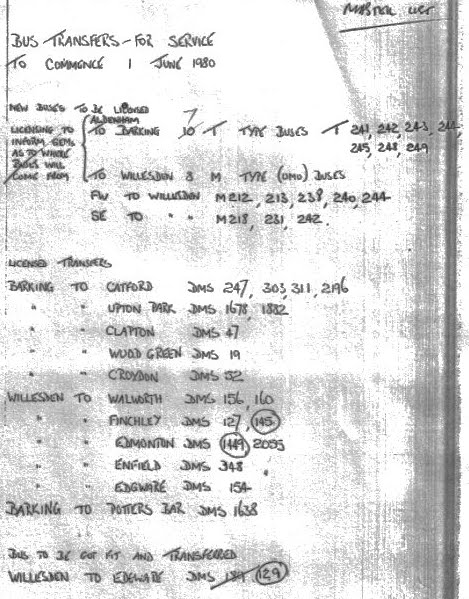 MASTER LIST
BUS TRANSFERS - FOR SERVICE
TO COMMENCE 1 JUNE 1980
NEW BUSES TO BE LICENSED
ALDENHAM 7
LICENSING TO TO BARKING 10 T TYPE BUSES T 241, 242, 243, 244,
INFORM GEMS 245, 248, 249
AS TO WHERE
BUSES WILL
COME FROM TO WILLESDEN 8 M TYPE (OMO) BUSES
FW TO WILLESDEN M 212, 213, 238, 240, 244
SE TO " " M 218, 231, 242.
LICENSED TRANSFERS
BARKING TO CATFORD DMS 247, 303, 311, 2196
" " UPTON PARK DMS 1678, 1882
" " CLAPTON DMS 47
" " WOOD GREEN DMS 19
" " CROYDON DMS 52
WILLESDEN TO WALWORTH DMS 156, 160
" " FINCHLEY DMS 127, 145
" " EDMONTON DMS 1449, 2055
" " ENFIELD DMS 348
" " EDGWARE DMS 154
BARKING TO POTTERS BAR DMS 1638
BUS TO BE GOT FIT AND TRANSFERRED
WILLESDEN TO EDGWARE DMS 129